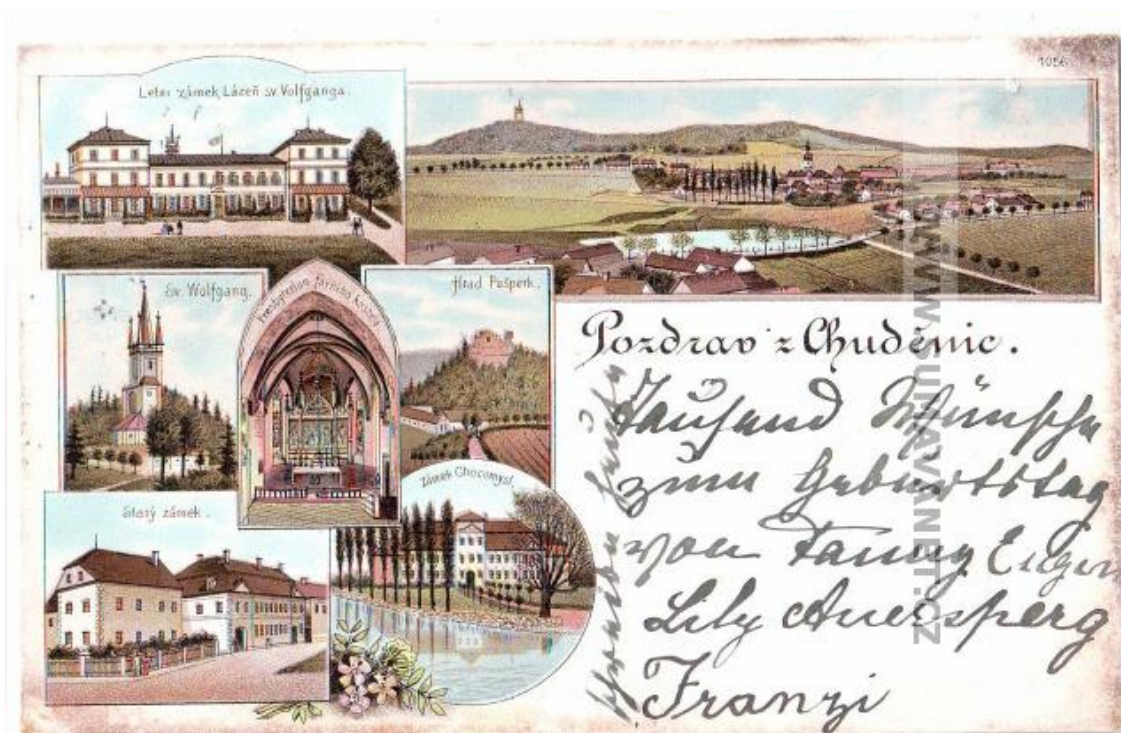 1056
Letní zámek, Lázeň sv. Volfganga.
Sv. Wolfgang.
Presbyterium farního kostela
Hrad Pušperk.
Starý zámek.
Zámek Chocomyšl
Pozdrav z Chuděnic.
Tausend Wünsche
zum Geburtstag
von Fanny Eugen
Lily Auersperg
Franzi
WWW.SUMAVANET.CZ